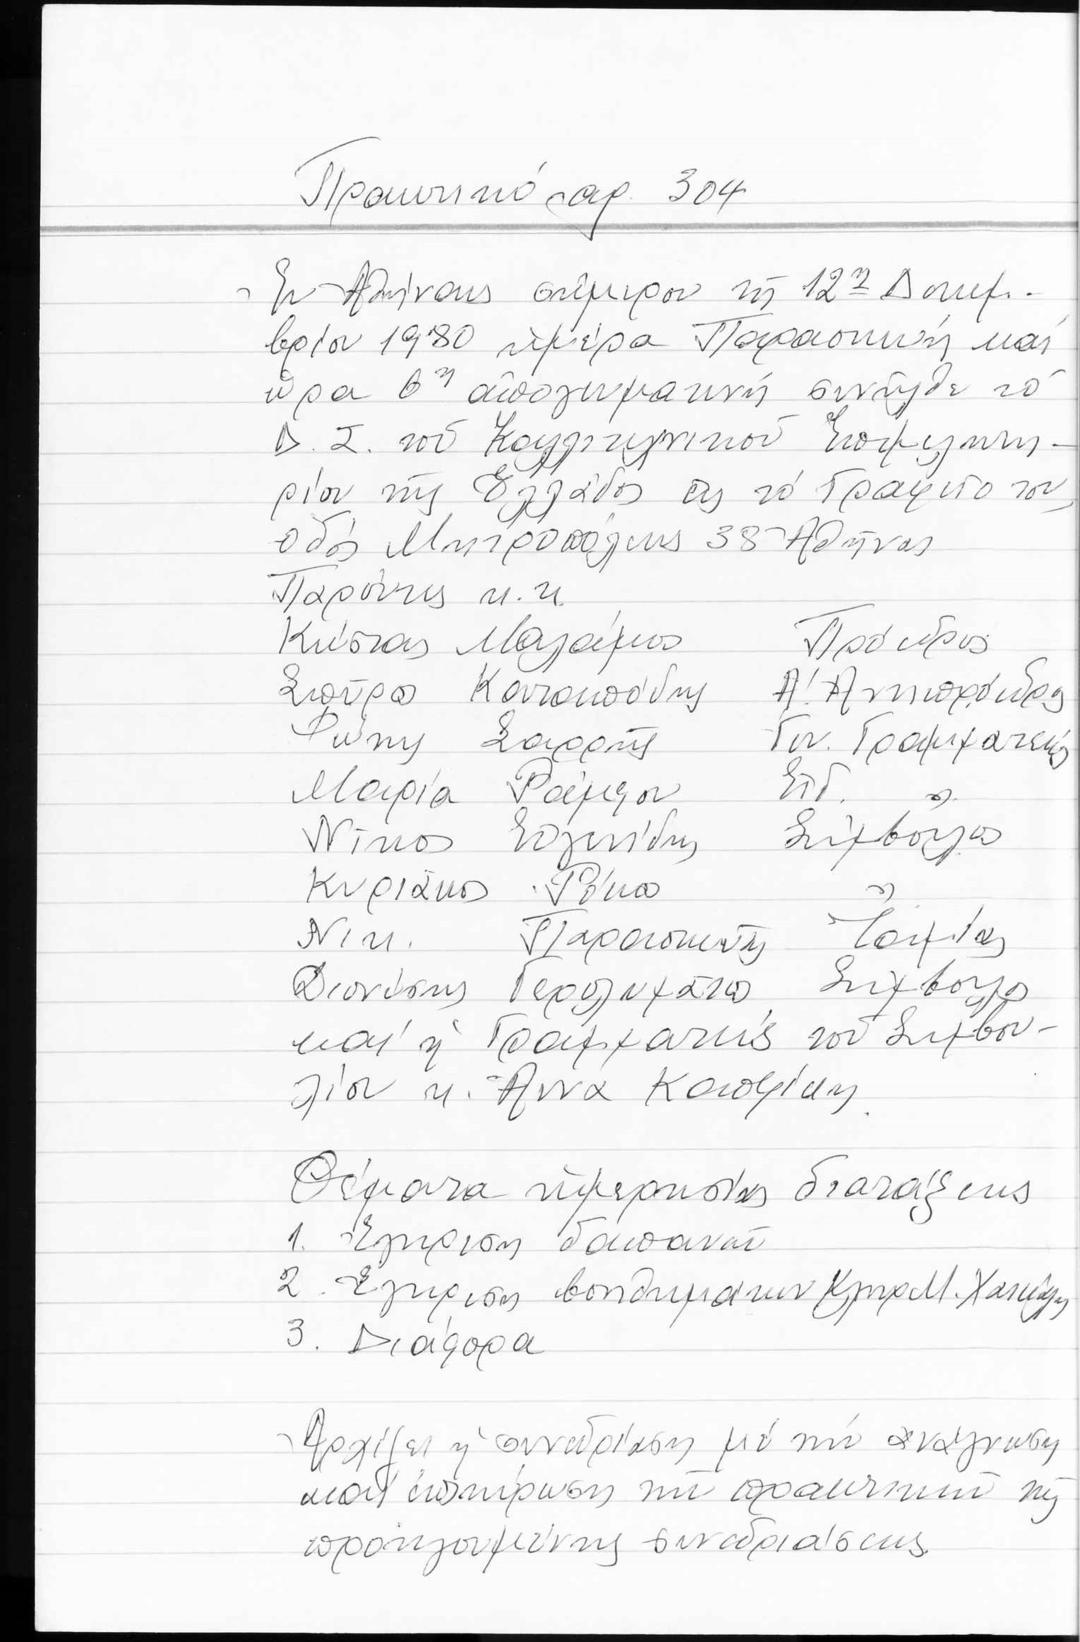 Πρακτικό ἀρ. 304
Ἐν Ἀθήναις σήμερον τῇ 12η Δεκεμ-
βρίου 1980 ἡμέρα Παρασκευή καί
ὥρα 6η ἀπογευματινή συνῆλθε τό
Δ. Σ. τοῦ Καλλιτεχνικοῦ Ἐπιμελητη-
ρίου τῆς Ἑλλάδος εἰς τό Γραφεῖο του,
ὁδός Μητροπόλεως 38 Ἀθῆνας
Παρόντες κ.κ.
Κώστας Μαλάμος Πρόεδρος
Σπῦρος Κατακουζηνός Α! Ἀντιπρόεδρος
Φώτης Σαρρῆς Γεν. Γραμματεύς
Μαρία Ράμφου Εἰδ. "
Νῖκος Εὐγενίδης Σύμβουλος
Κυριάκος Ρόκος "
Νικ. Παρασκευᾶς Ταμίας
Διονύσης Γερολυμάτος Σύμβουλος
καί ἡ Γραμματεύς τοῦ Συμβου-
λίου κ. Ἄννα Καψάκη
Θέματα ἡμερησίας διατάξεως
1. Ἔγκριση δαπανῶν
2. Ἔγκριση βοηθημάτων Κληρ. Μ.
3. Διάφορα
Ἀρχίζει ἡ συνεδρίαση μέ τήν ἀνάγνωση
καί ἐπικύρωση τῶν πρακτικῶν τῆς
προηγουμένης συνεδριάσεως